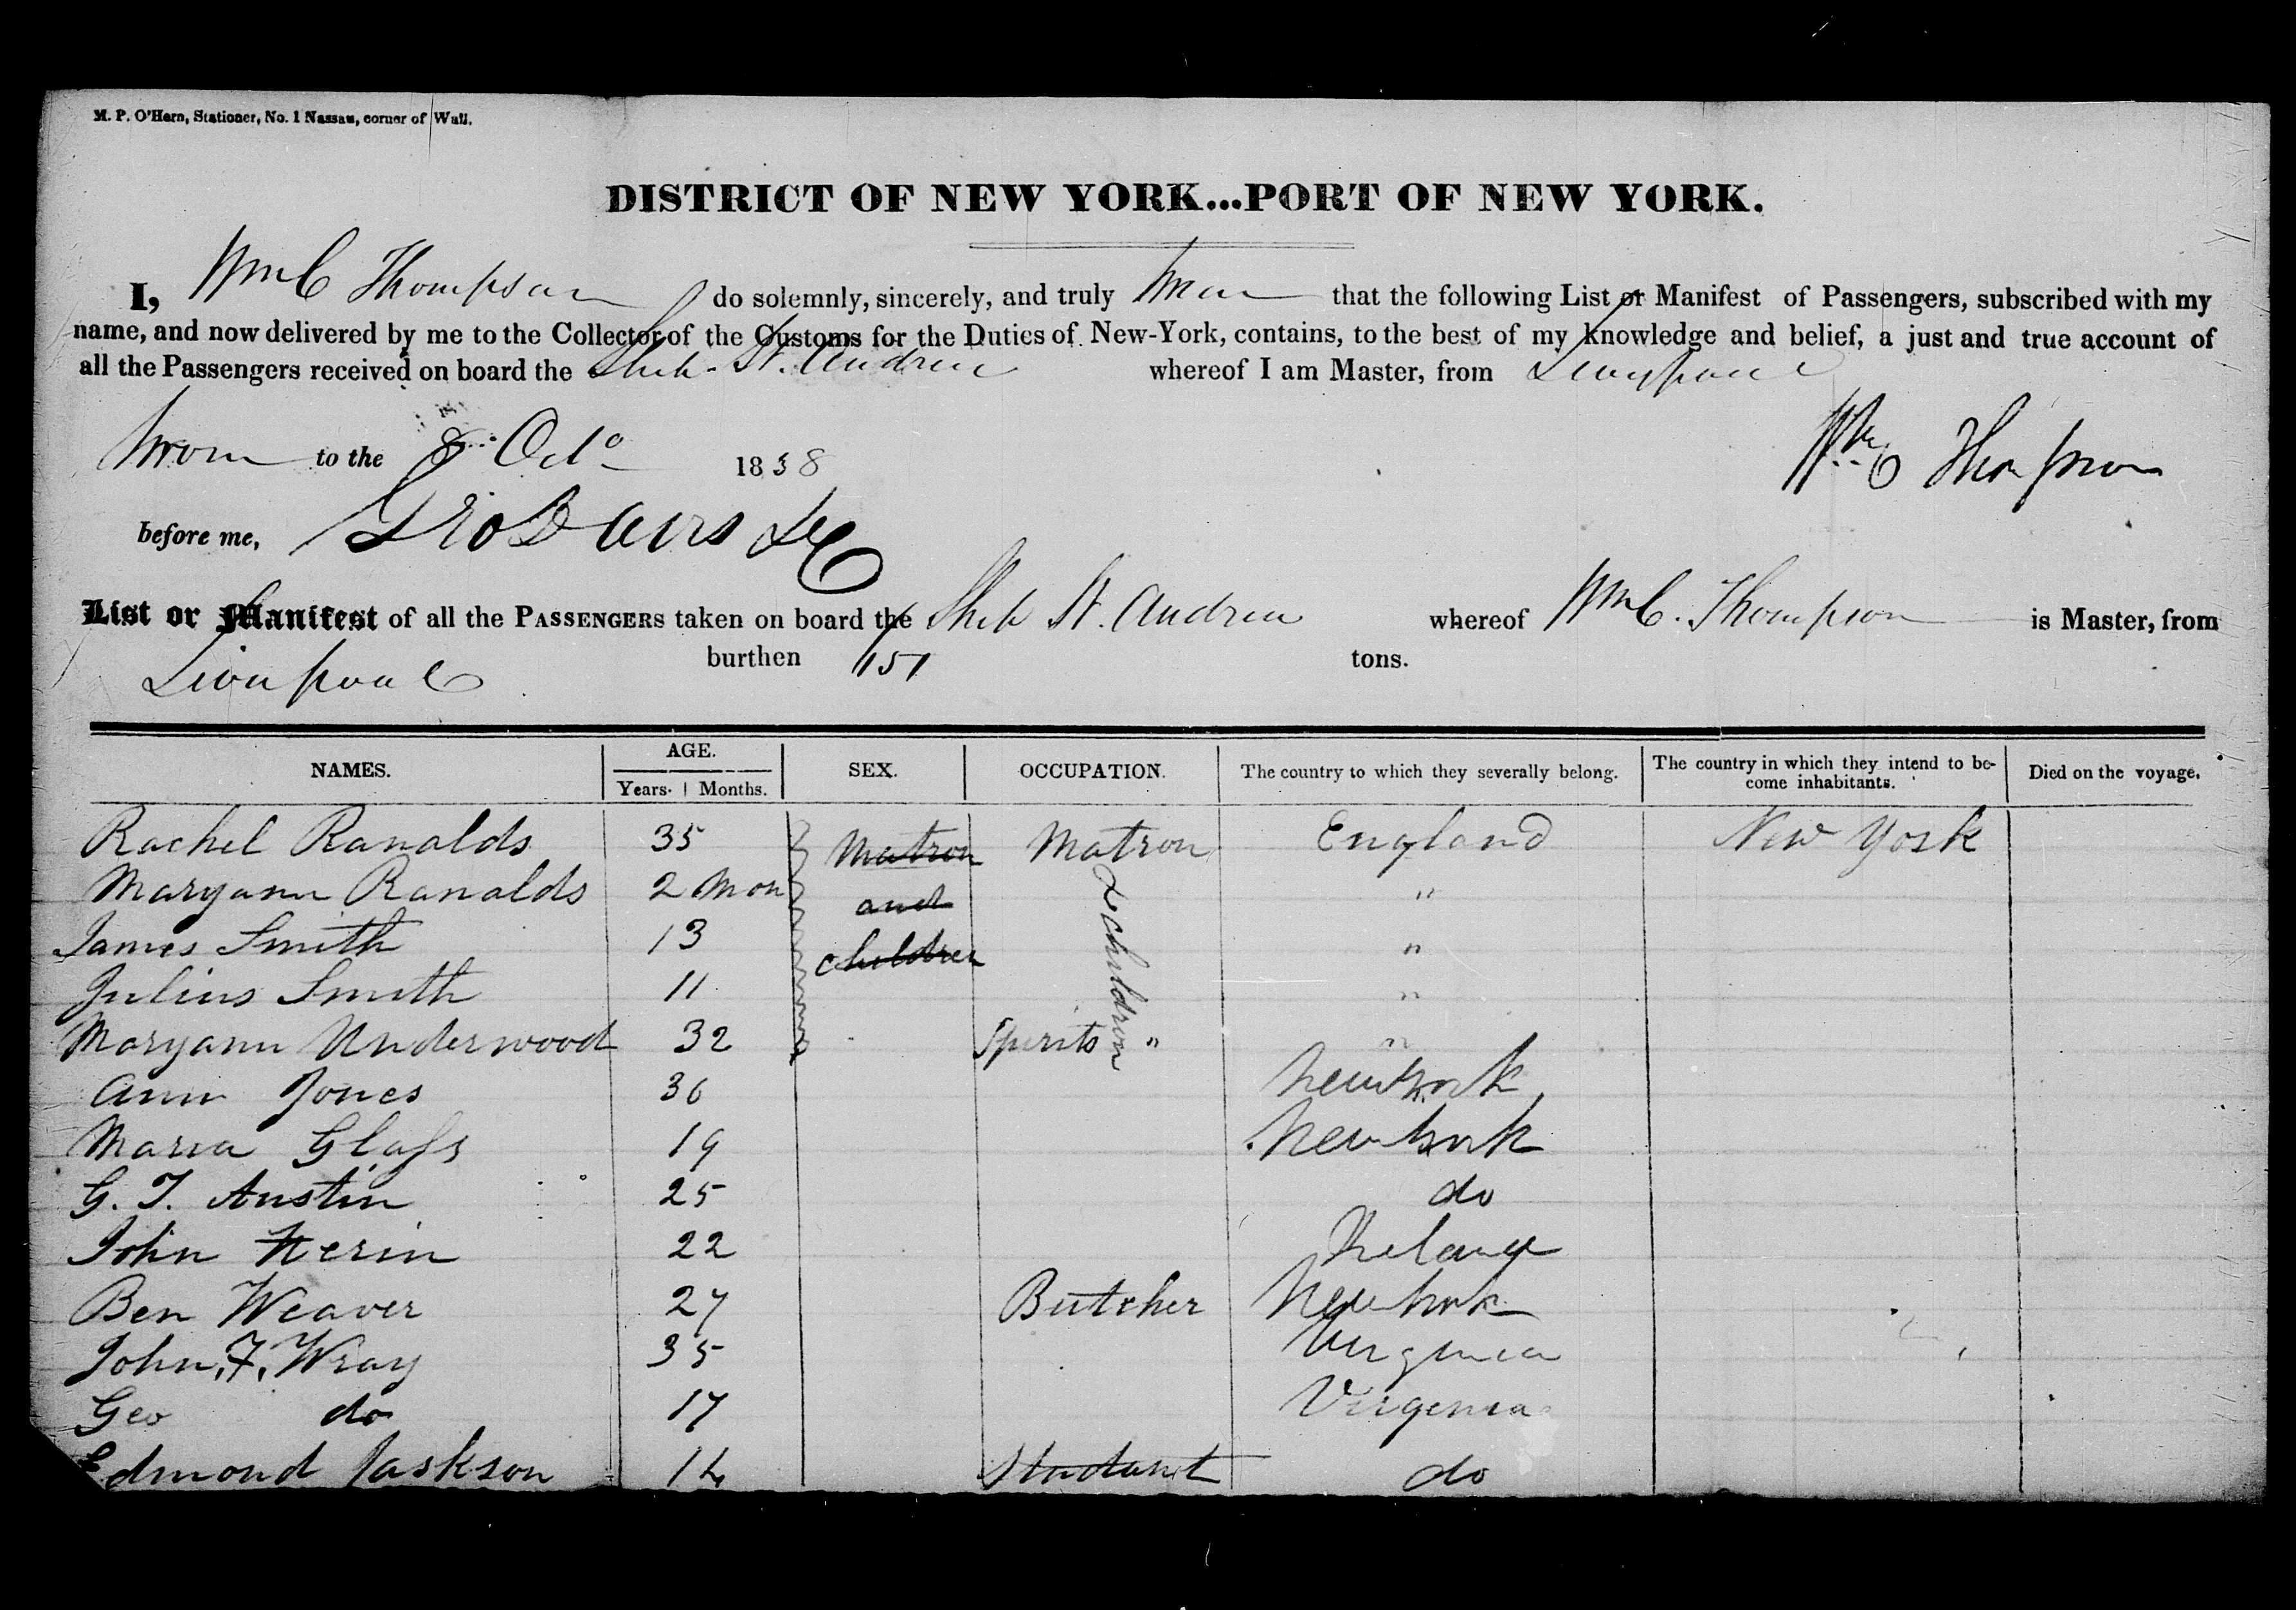 M. P. O'Hern, Stationer, No. 1 Nassau, corner of Wall.
DISTRICT OF NEW YORK...PORT OF NEW YORK.
I, Wm C Thompson do solemnly, sincerely, and truly swear that the following List or Manifest of Passengers, subscribed with my
name, and now delivered by me to the Collector of the Customs for the Duties of New-York, contains, to the best of my knowledge and belief, a just and true account of
all the Passengers received on board the Ship St. Andrew whereof I am Master, from Liverpool
Sworn to the 8 Octo 1838 Wm C Thompson
before me, Geo Davis DC
List or Manifest of all the PASSENGERS taken on board the Ship St. Andrew whereof Wm C. Thompson is Master, from
Liverpool burthen 651 tons.
NAMES. AGE. Years. Months. SEX. OCCUPATION. The country to which they severally belong. The country in which they intend to become inhabitants. Died on the voyage.
Rachel Ranalds 35 Matron Matron England New York
Maryann Ranalds 2 Mon and & Children "
James Smith 13 children "
Julius Smith 11 "
Maryann Underwood 32 Spirits " "
Ann Jones 36 New York
Maria Glass 19 New York
G. T. Austin 25 do
John Nerin 22 Ireland
Ben Weaver 27 Butcher New York
John F. Wray 35 Virginia
Geo do 17 Virgenia
Edmond Jaskson 14 Studant do